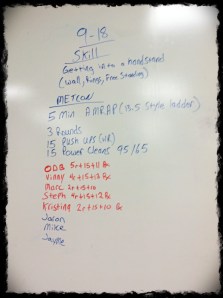 9-18
Skill
Getting into a handstand
(wall, Rings, Free Standing)
METCON
5 min AMRAP (13.5 Style ladder)
3 Rounds
15 Push ups (HR)
15 Power Cleans 95/65
ODB 5r+15+11 Rx
Vinny 4r+15+13 Rx
Marc 2r+15+10
Steph 4r+15+12 Rx
Kristina 2r+15+10 Rx
Jason
Mike
Jayme